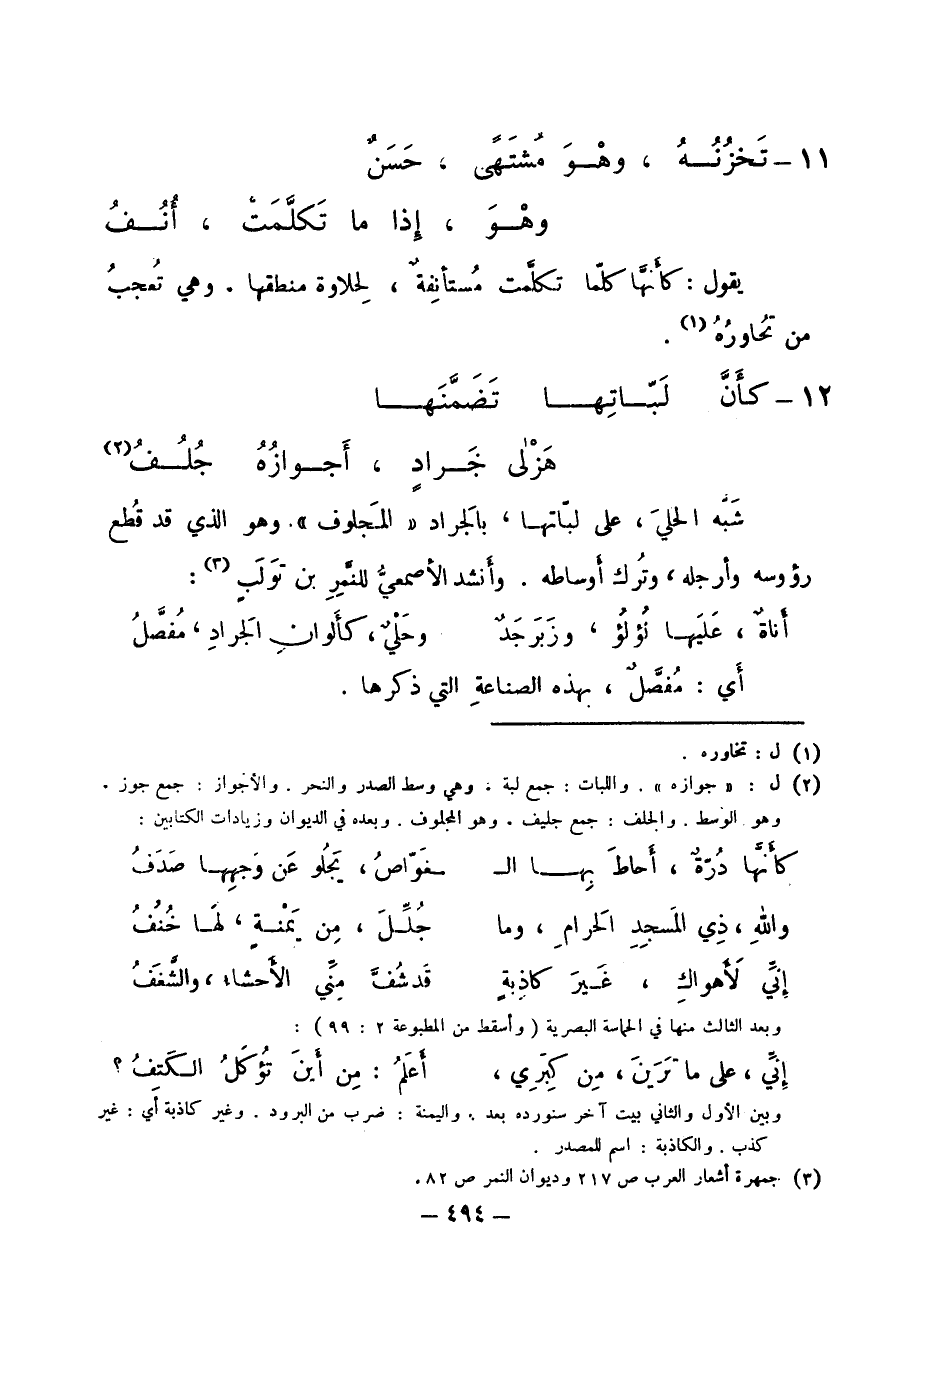 ١١ ـ تَخزُنُـهُ ، وهْـوَ مُشتَهًى ، حَسَنٌ
وهْـوَ ، إِذا ما تَكَلَّمَتْ ، أُنُـفُ
يقول : كأَنَّها كلّما تكلَّمت مُستأنِفةٌ ، لِحلاوة منطقها . وهي تُعجبُ
من تُحاورُهُ (١) .
١٢ ـ كأَنَّ لَبّـاتِهـا تَضَمَّنَهـا
هَزْلَى جَـرادٍ ، أَجـوازُهُ جُلُـفُ(٢)
شَبَّه الحليَ ، على لبّاتهـا ، بالجراد « المَجلوف ». وهو الذي قد قُطع
رؤوسه وأرجله ، وتُرك أوساطه . وأنشد الأصمعيُّ للنَّمِرِ بن تَولَبٍ (٣) :
أَناةٌ ، عَلَيهـا لُؤلُؤ ، وزَبَرجَدٌ وحَليٌ ، كأَلوانِ الجرادِ ، مُفصَّلُ
أي : مُفصَّلٌ ، بهذه الصناعةِ التي ذكرها .
(١) ل : تخاوره .
(٢) ل : « جوازه » . واللبات : جمع لبة ، وهي وسط الصدر والنحر . والأجواز : جمع جوز .
وهو الوسط . والجلف : جمع جليف . وهو المجلوف . وبعده في الديوان وزيادات الكتابين :
كأَنَّها دُرّةٌ ، أَحاطَ بِهـا الـ ـغَوّاصُ ، يَجلُو عَن وَجهِها صَدَفُ
واللهِ ، ذِي المَسجِدِ الحَرامِ ، وما جُلِّـلَ ، مِن يَمْنـةٍ ، لَهـا خُنُفُ
إنِّي لَأَهواكِ ، غَـيرَ كاذِبةٍ قَد شُفَّ مِنِّي الأَحشاء ، والشَّغَفُ
وبعد الثالث منها في الحماسة البصرية ( وأسقط من المطبوعة ٢ : ٩٩ ) :
إنِّي ، على ما تَرَينَ ، مِن كِبَرِي ، أَعلَمُ : مِن أَينَ تُؤكَلُ الكَتِفُ ؟
وبين الأول والثاني بيت آخر سنورده بعد . واليمنة : ضرب من البرود . وغير كاذبة أي : غير
كذب . والكاذبة : اسم للمصدر .
(٣) جمهرة أشعار العرب ص ٢١٧ وديوان النمر ص ٨٢ .
ـ ٤٩٤ ـ